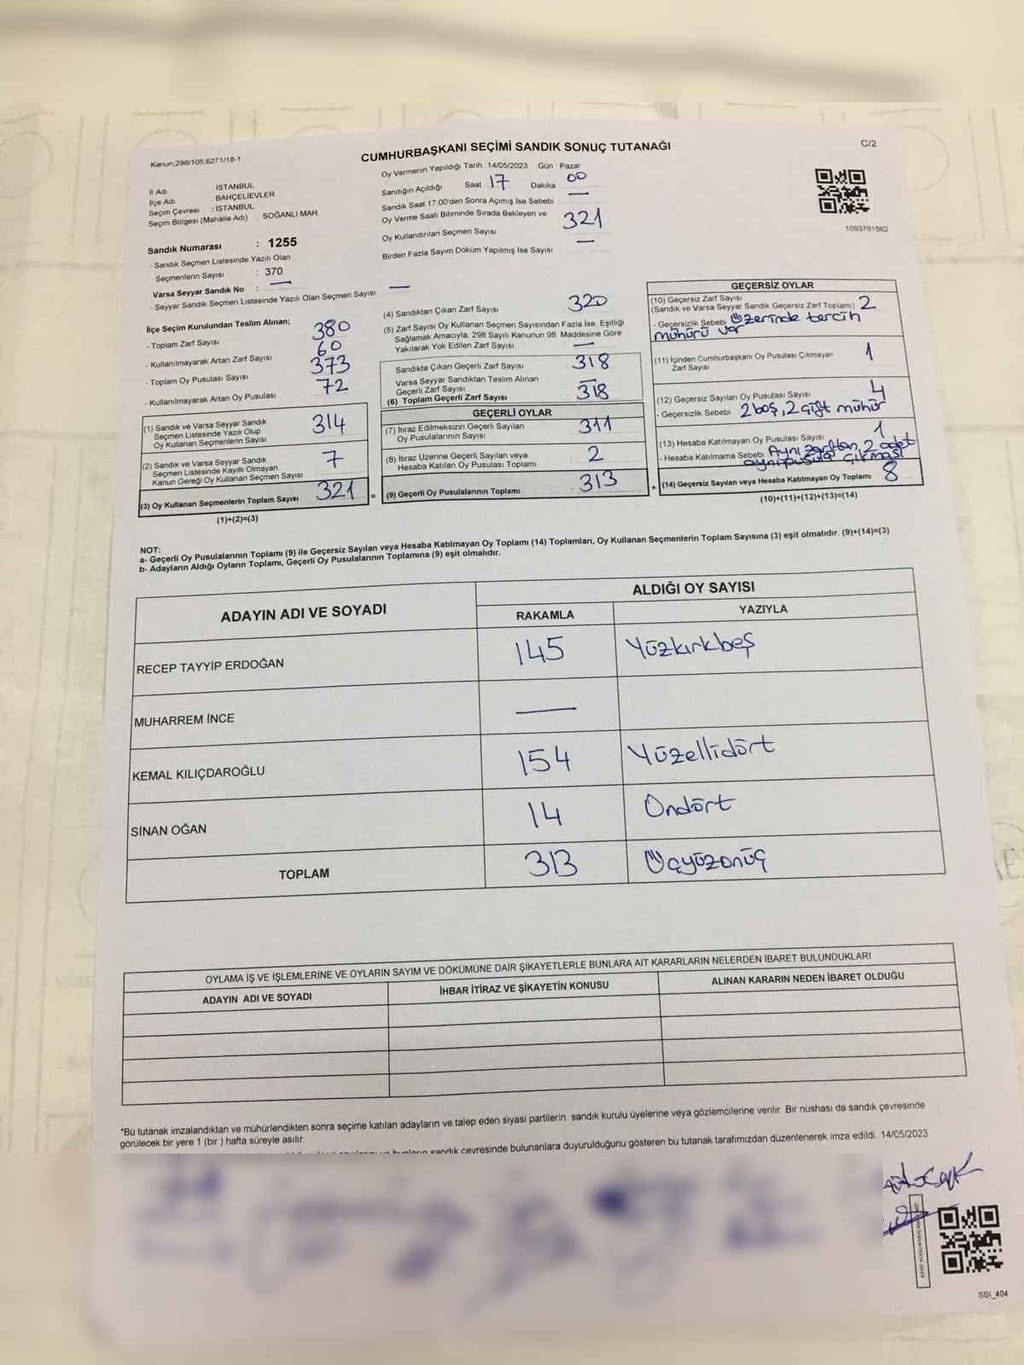 Kanun:298/105.6271/18-1
CUMHURBAŞKANI SEÇİMİ SANDIK SONUÇ TUTANAĞI
C/2
İl Adı : İSTANBUL
İlçe Adı : BAHÇELİEVLER
Seçim Çevresi : İSTANBUL
Seçim Bölgesi (Mahalle Adı) SOĞANLI MAH.
Sandık Numarası : 1255
- Sandık Seçmen Listesinde Yazılı Olan
Seçmenlerin Sayısı : 370
Varsa Seyyar Sandık No : —
- Seyyar Sandık Seçmen Listesinde Yazılı Olan Seçmen Sayısı: —
Oy Vermenin Yapıldığı Tarih :14/05/2023 Gün : Pazar
Sandığın Açıldığı Saat 17 Dakika 00
Sandık Saat 17.00'den Sonra Açımış İse Sebebi —
Oy Verme Saati Bitiminde Sırada Bekleyen ve
Oy Kullandırılan Seçmen Sayısı 321
Birden Fazla Sayım Döküm Yapılmış İse Sayısı —
1093781562
İlçe Seçim Kurulundan Teslim Alınan;
- Toplam Zarf Sayısı 380
- Kullanılmayarak Artan Zarf Sayısı 60
- Toplam Oy Pusulası Sayısı 373
- Kullanılmayarak Artan Oy Pusulası 72
(1) Sandık ve Varsa Seyyar Sandık
Seçmen Listesinde Yazılı Olup
Oy Kullanan Seçmenlerin Sayısı 314
(2) Sandık ve Varsa Seyyar Sandık
Seçmen Listesinde Kayıtlı Olmayan
Kanun Gereği Oy Kullanan Seçmen Sayısı 7
(3) Oy Kullanan Seçmenlerin Toplam Sayısı 321 =
(1)+(2)=(3)
(4) Sandıktan Çıkan Zarf Sayısı 320
(5) Zarf Sayısı Oy Kullanan Seçmen Sayısından Fazla İse, Eşitliği
Sağlamak Amacıyla, 298 Sayılı Kanunun 98. Maddesine Göre
Yakılarak Yok Edilen Zarf Sayısı —
Sandıkta Çıkan Geçerli Zarf Sayısı 318
Varsa Seyyar Sandıktan Teslim Alınan
Geçerli Zarf Sayısı —
(6) Toplam Geçerli Zarf Sayısı 318
GEÇERLİ OYLAR
(7) İtiraz Edilmeksizin Geçerli Sayılan
Oy Pusulalarının Sayısı 311
(8) İtiraz Üzerine Geçerli Sayılan veya
Hesaba Katılan Oy Pusulası Toplamı 2
(9) Geçerli Oy Pusulalarının Toplamı 313
GEÇERSİZ OYLAR
(10) Geçersiz Zarf Sayısı
(Sandık ve Varsa Seyyar Sandık Geçersiz Zarf Toplamı) 2
- Geçersizlik Sebebi Üzerinde tercih
mühürü var
(11) İçinden Cumhurbaşkanı Oy Pusulası Çıkmayan
Zarf Sayısı 1
(12) Geçersiz Sayılan Oy Pusulası Sayısı 4
- Geçersizlik Sebebi 2 boş, 2 çift mühür
(13) Hesaba Katılmayan Oy Pusulası Sayısı 1
- Hesaba Katılmama Sebebi Aynı zarftan 2 adet
aynı pusula çıkması
(14) Geçersiz Sayılan veya Hesaba Katılmayan Oy Toplamı 8
(10)+(11)+(12)+(13)=(14)
NOT:
a- Geçerli Oy Pusulalarının Toplamı (9) ile Geçersiz Sayılan veya Hesaba Katılmayan Oy Toplamı (14) Toplamları, Oy Kullanan Seçmenlerin Toplam Sayısına (3) eşit olmalıdır. (9)+(14)=(3)
b- Adayların Aldığı Oyların Toplamı, Geçerli Oy Pusulalarının Toplamına (9) eşit olmalıdır.
ADAYIN ADI VE SOYADI
ALDIĞI OY SAYISI
RAKAMLA YAZIYLA
RECEP TAYYİP ERDOĞAN 145 Yüzkırkbeş
MUHARREM İNCE —
KEMAL KILIÇDAROĞLU 154 Yüzellidört
SİNAN OĞAN 14 Ondört
TOPLAM 313 Üçyüzonüç
OYLAMA İŞ VE İŞLEMLERİNE VE OYLARIN SAYIM VE DÖKÜMÜNE DAİR ŞİKAYETLERLE BUNLARA AİT KARARLARIN NELERDEN İBARET BULUNDUKLARI
ADAYIN ADI VE SOYADI İHBAR İTİRAZ VE ŞİKAYETİN KONUSU ALINAN KARARIN NEDEN İBARET OLDUĞU
*Bu tutanak imzalandıktan ve mühürlendikten sonra seçime katılan adayların ve talep eden siyasi partilerin sandık kurulu üyelerine veya gözlemcilerine verilir. Bir nushası da sandık çevresinde
görülecek bir yere 1 (bir ) hafta süreyle asılır.
sandık çevresinde bulunanlara duyurulduğunu gösteren bu tutanak tarafımızdan düzenlenerek imza edildi. 14/05/2023
SSI_404